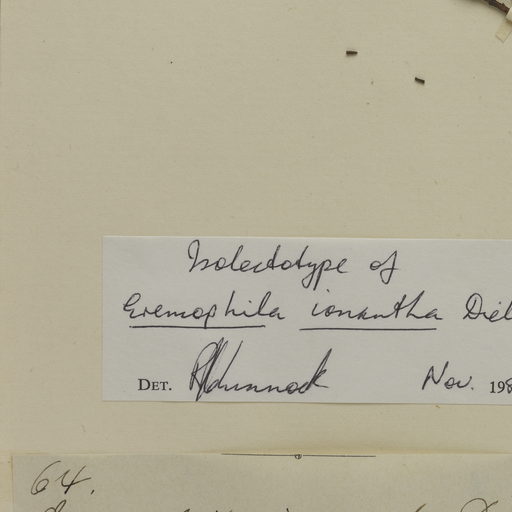 Isolectotype of
Eremophila ionantha Diel
DET. RJChinnock Nov. 198
64.